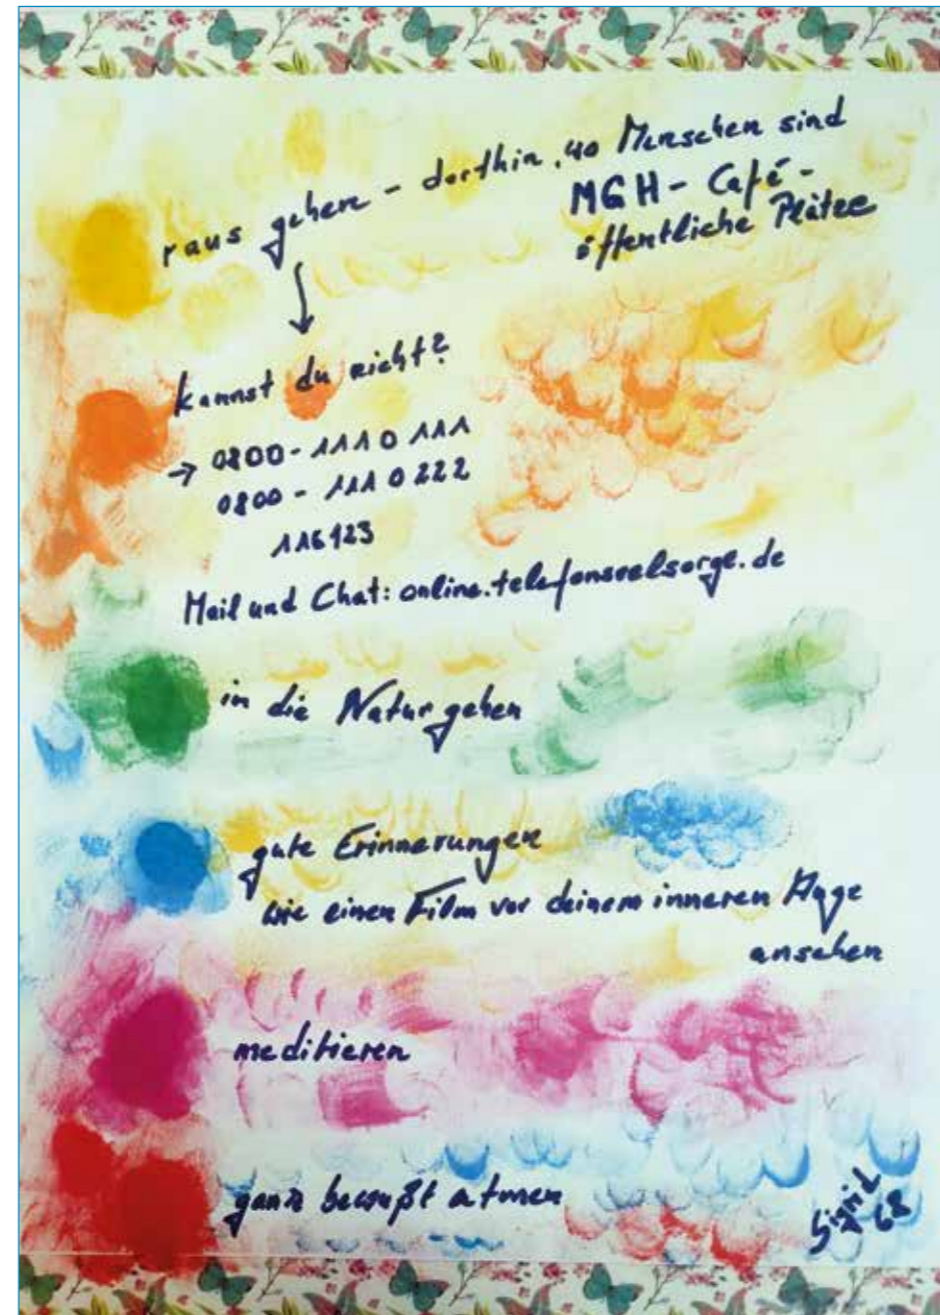 raus gehen – dorthin, wo Menschen sind
MGH - Café -
öffentliche Plätze
kannst du nicht?
→ 0800 - 1110 111
0800 - 111 0 222
116123
Mail und Chat: online.telefonseelsorge.de
in die Natur gehen
gute Erinnerungen
wie einen Film vor deinem inneren Auge
ansehen
meditieren
ganz bewußt atmen
Sigrid
68